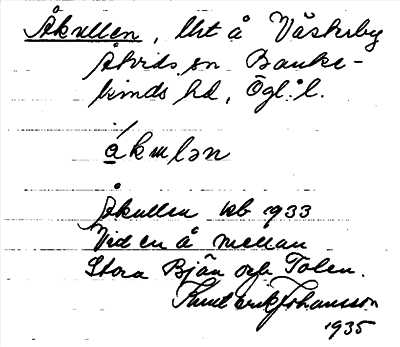 Åkullen, lht å Västerby
Åtvids sn Banke-
kinds hd, Ögl. l.
åkulən
Åkullen kb 1933
Vid en å mellan
Stora Bjän och Tolen.
Knut Erik Johansson
1935